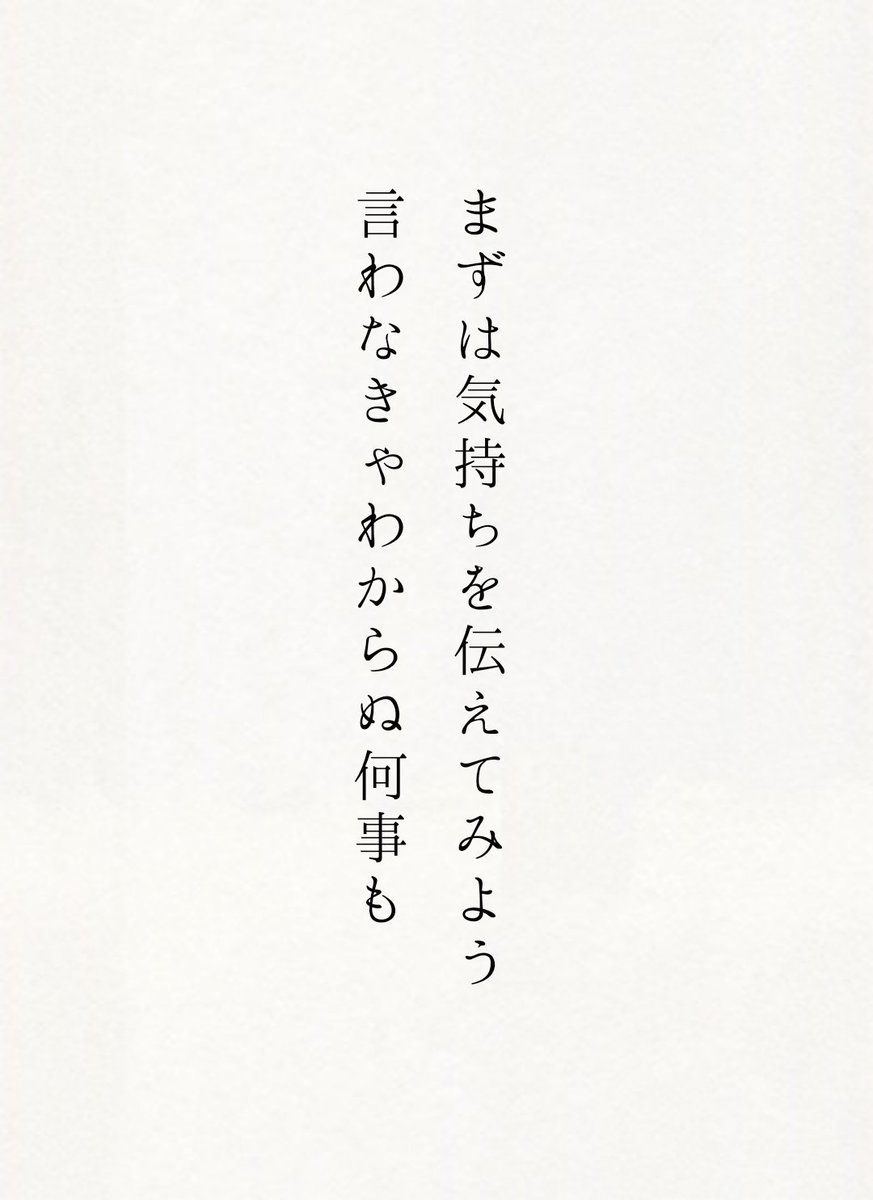 まずは気持ちを伝えてみよう
言わなきゃわからぬ何事も